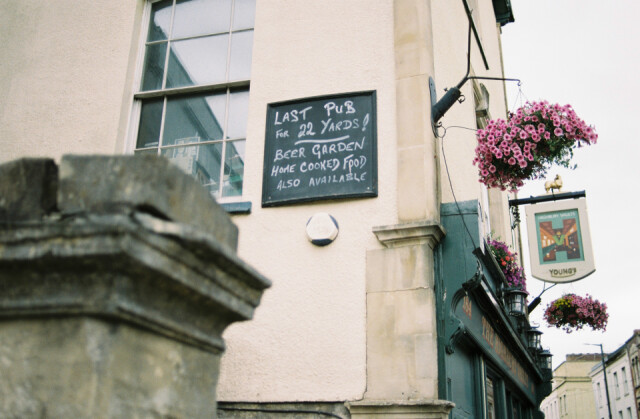 LAST PUB
FOR 22 YARDS!
BEER GARDEN
HOME COOKED FOOD
ALSO AVAILABLE
H
YOUNG'S